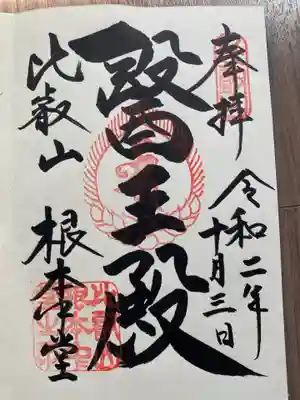 奉拝
令和二年
十月三日
醫王殿
比叡山
根本中堂